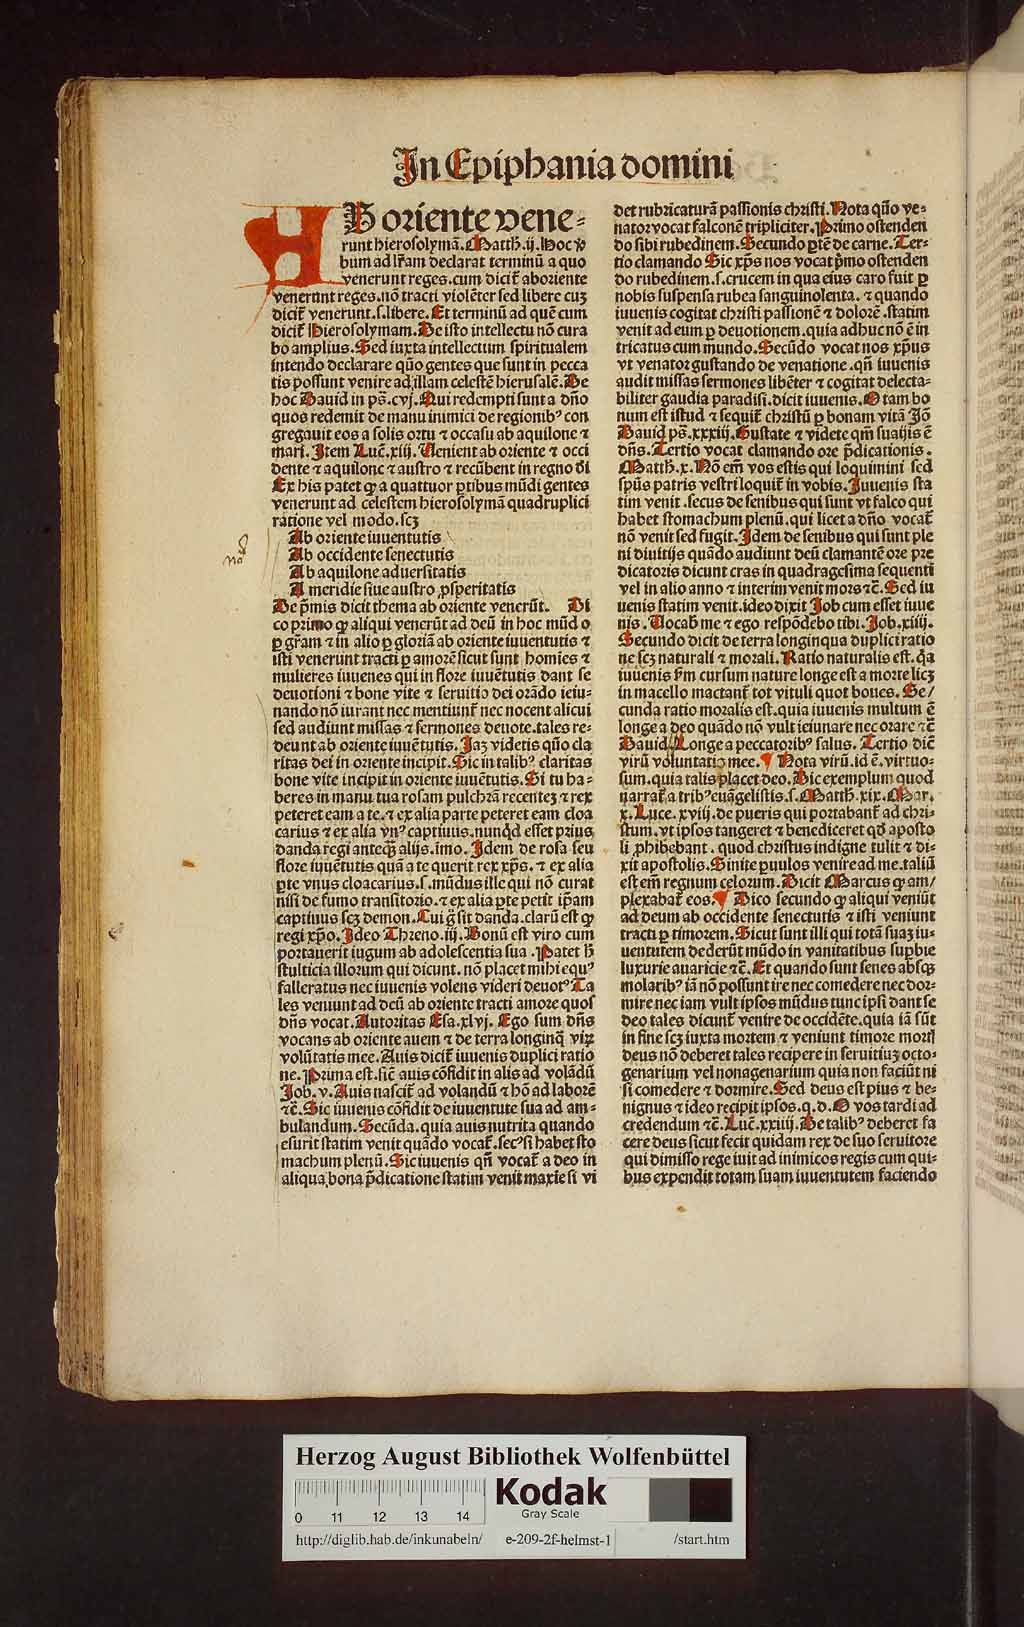 In Epiphania domini
AB oriente vene-
runt hierosolymā. Matth. ij. Hoc v̄
bum ad lr̄am declarat terminū a quo
venerunt reges. cum dicit̄ ab oriente
venerunt reges. nō tracti violēter sed libere cuꝫ
dicit̄ venerunt .s. libere. Et terminū ad quē cum
dicit̄ Hierosolymam. De isto intellectu nō cura
bo amplius. Sed iuxta intellectum spiritualem
intendo declarare quō gentes que sunt in pecca
tis possunt venire ad illam celestē hierusalē. De
hoc Dauid in ps̄. cvj. Qui redempti sunt a dn̄o
quos redemit de manu inimici de regionibꝰ con
gregauit eos a solis ortu ⁊ occasu ab aquilone ⁊
mari. Item Luc̄. xiij. Venient ab oriente ⁊ occi
dente ⁊ aquilone ⁊ austro ⁊ recūbent in regno dī
Ex his patet ꝙ a quattuor ꝑtibus mūdi gentes
venerunt ad celestem hierosolymā quadruplici
ratione vel modo. scꝫ
Ab oriente iuuentutis
Ab occidente senectutis
Ab aquilone aduersitatis
A meridie siue austro ꝓsperitatis
De p̄mis dicit thema ab oriente venerūt. Di
co primo ꝙ aliqui venerūt ad deū in hoc mūd o
ꝑ gr̄am ⁊ in alio ꝑ gloriā ab oriente iuuentutis ⁊
isti venerunt tracti ꝑ amorē sicut sunt homīes ⁊
mulieres iuuenes qui in flore iuuētutis dant se
deuotioni ⁊ bone vite ⁊ seruitio dei orādo ieiu-
nando nō iurant nec mentiunt̄ nec nocent alicui
sed audiunt missas ⁊ sermones deuote. tales re-
deunt ab oriente iuuētutis. Jaꝫ videtis quō cla
ritas dei in oriente incipit. Sic in talibꝰ claritas
bone vite incipit in oriente iuuētutis. Si tu ha-
beres in manu tua rosam pulchrā recenteꝫ ⁊ rex
peteret eam a te. ⁊ ex alia parte peteret eam cloa
carius ⁊ ex alia vnꝰ captiuus. nunq̄d esset prius
danda regi anteqꝫ alijs. imo. Idem de rosa seu
flore iuuētutis quā a te querit rex xp̄s. ⁊ ex alia
ꝑte vnus cloacarius .s. mūdus ille qui nō curat
nisi de fumo transitorio. ⁊ ex alia ꝑte petit ip̄am
captiuus scꝫ demon. Cui g̊ sit danda. clarū est ꝙ
regi xp̄o. Ideo Threno. iij. Bonū est viro cum
portauerit iugum ab adolescentia sua . Patet h̄
stulticia illorum qui dicunt. nō placet mihi equꝰ
falleratus nec iuuenis volens videri deuotꝰ Ta
les veniunt ad deū ab oriente tracti amore quos
dn̄s vocat. Autoritas Esa. xlvj. Ego sum dn̄s
vocans ab oriente auem ⁊ de terra longinq̄ virꝫ
volūtatis mee. Auis dicit̄ iuuenis duplici ratio
ne. Prima est. sic̄ auis cōfidit in alis ad volādū
Job. v. Auis nascit̄ ad volandū ⁊ hō ad laborē
⁊c̄. Sic iuuenis cōfidit de iuuentute sua ad am-
bulandum. Secūda. quia auis nutrita quando
esurit statim venit quādo vocat̄. secꝰ si habet sto
machum plenū. Sic iuuenis qn̄ vocat̄ a deo in
aliqua bona p̄dicatione statim venit maxīe si vi
det rubricaturā passionis christi. Nota quō ve-
nator vocat falconē tripliciter. Primo ostenden
do sibi rubedinem. Secundo ꝑtē de carne. Ter-
tio clamando Sic xp̄s nos vocat p̄mo ostenden
do rubedinem .s. crucem in qua eius caro fuit ꝑ
nobis suspensa rubea sanguinolenta. ⁊ quando
iuuenis cogitat christi passionē ⁊ dolorē. statim
venit ad eum ꝑ deuotionem. quia adhuc nō ē in
tricatus cum mundo. Secūdo vocat nos xp̄us
vt venator gustando de venatione. qn̄ iuuenis
audit missas sermones libēter ⁊ cogitat delecta-
biliter gaudia paradisi. dicit iuuenis. O tam bo
num est istud ⁊ sequit̄ christū ꝑ bonam vitā Iō
Dauid ps̄. xxxiij. Gustate ⁊ videte qm̄ suauis ē
dn̄s. Tertio vocat clamando ore p̄dicationis.
Matth. x. Nō em̄ vos estis qui loquimini sed
spūs patris vestri loquit̄ in vobis. Iuuenis sta
tim venit . secus de senibus qui sunt vt falco qui
habet stomachum plenū. qui licet a dn̄o vocat̄
nō venit sed fugit. Idem de senibus qui sunt ple
ni diuitijs quādo audiunt deū clamantē ore pre
dicatoris dicunt cras in quadragesima sequenti
vel in alio anno ⁊ interim venit mors ⁊c̄. Sed iu
uenis statim venit. ideo dixit Job cum esset iuue
nis. Vocab̄ me ⁊ ego respōdebo tibi. Job. xiiij.
Secundo dicit de terra longinqua duplici ratio
ne scꝫ naturali ⁊ morali. Ratio naturalis est. q̄a
iuuenis ẜm cursum nature longe est a morte licꝫ
in macello mactant̄ tot vituli quot boues. Se/
cunda ratio moralis est. quia iuuenis multum ē
longe a deo quādo nō vult ieiunare nec orare ⁊c̄
Dauid Longe a peccatoribꝰ salus. Tertio dic̄
virū voluntatis mee. ¶ Nota virū. id ē. virtuo-
sum. quia talis placet deo. Dic exemplum quod
narrat̄ a tribꝰ euāgelistis .s. Matth. xix. Mar.
x. Luce. xviij. de pueris qui portabant̄ ad chri-
stum. vt ipsos tangeret ⁊ benediceret qd̄ aposto
li ꝓhibebant . quod christus indigne tulit ⁊ di-
xit apostolis. Sinite ꝑuulos venire ad me. taliū
est em̄ regnum celorum. Dicit Marcus ꝙ am/
plexabat̄ eos. ¶ Dico secundo ꝙ aliqui veniūt
ad deum ab occidente senectutis ⁊ isti veniunt
tracti ꝑ timorem. Sicut sunt illi qui totā suaꝫ iu-
uentutem dederūt mūdo in vanitatibus suꝑbie
luxurie auaricie ⁊c̄. Et quando sunt senes absqꝫ
molaribꝰ iā nō possunt ire nec comedere nec dor-
mire nec iam vult ipsos mūdus tunc ipsi dant se
deo tales dicunt̄ venire de occidēte. quia iā sūt
in fine scꝫ iuxta mortem ⁊ veniunt timore mortꝭ
deus nō deberet tales recipere in seruitiuꝫ octo-
genarium vel nonagenarium quia non faciūt ni
si comedere ⁊ dormire. Sed deus est pius ⁊ be-
nignus ⁊ ideo recipit ipsos. q. d. O vos tardi ad
credendum ⁊c̄. Luc̄. xxiiij. De talibꝰ deberet fa
cere deus sicut fecit quidam rex de suo seruitore
qui dimisso rege iuit ad inimicos regis cum qui-
bus expendit totam suam iuuentutem faciendo
Herzog August Bibliothek Wolfenbüttel
Kodak
Gray Scale
0 11 12 13 14
http://diglib.hab.de/inkunabeln/ e-209-2f-helmst-1 /start.htm